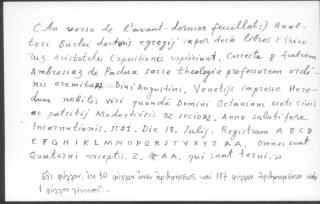 (Au verso de l'avant-dernier feuillet:) Hual-
teri Burlei doctoris egregij super decē libros Ethico-
ruz Aristotelis Expositiones expliciunt. Correcte p fratrem
Ambrosiuz de Padua sacre theologie professorem ordi-
nis eremitarz Diui Augustini. Venetijs impresse Here-
dum nobilis viri quondā Domini Octauiani scoti ciuis
ac patritij Modoetiēsis & sociorz. Anno salutifere
Incarnationis. 1521. Die 18. Iulij. Registrum A B C D
E F G H I K L M N O P Q R S T V X Y Z AA. Omnes sunt
Quaterni exceptis. Z. & AA. qui sunt terni.»
Εἰς φύλλον, ἐκ φύλλων ἄνευ ἀριθμήσεως καὶ 187 φύλλων ἠριθμημένων καὶ
1 φύλλου λευκοῦ.-